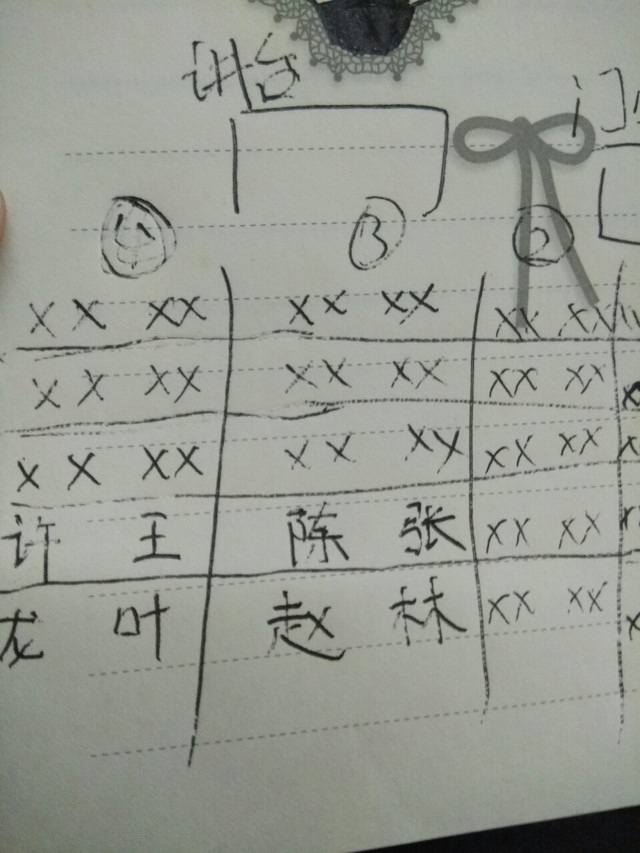 讲台
门
④ ③ ②
XX XX XX XX XX XX
XX XX XX XX XX XX
XX XX XX XX XX XX
许 王 陈 张 XX XX
龙 叶 赵 林 XX XX